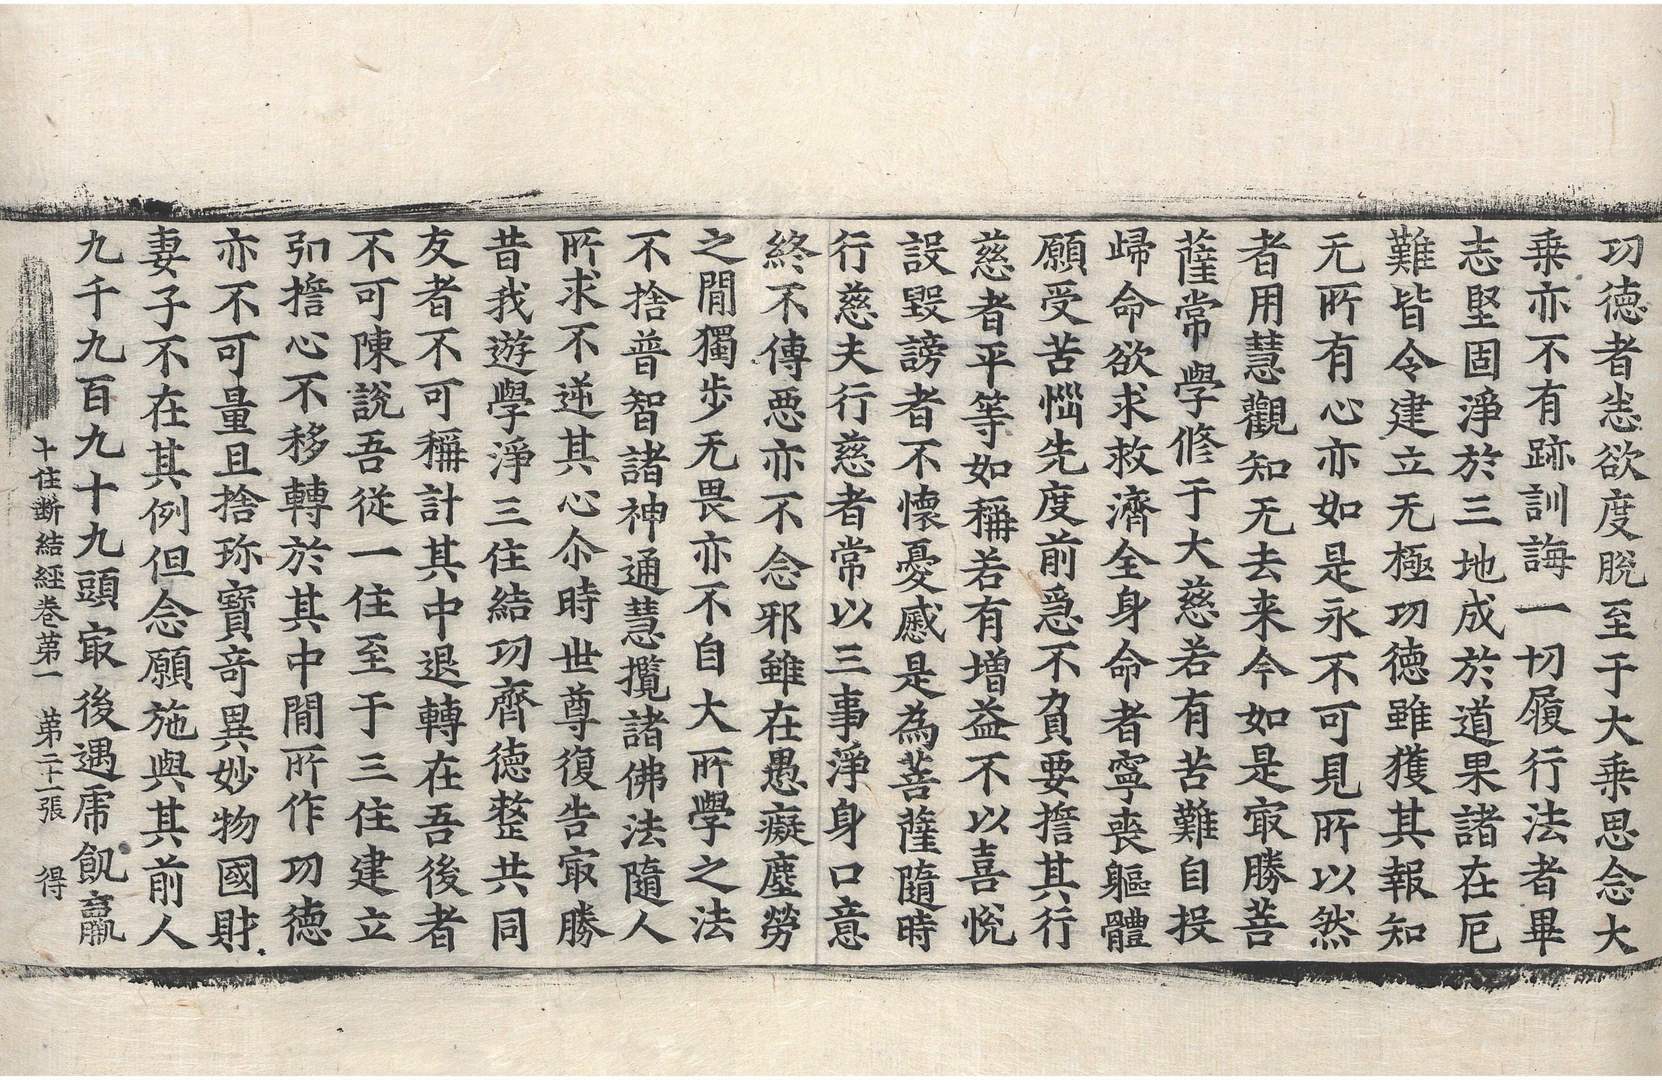 功德者悉欲度脫至于大乘思念大
乘亦不有跡訓誨一切履行法者畢
志堅固淨於三地成於道果諸在厄
難皆令建立无極功德雖獲其報知
无所有心亦如是永不可見所以然
者用慧觀知无去来今如是㝡勝菩
薩常學修于大慈若有苦難自投
歸命欲求救濟全身命者寧喪軀體
願受苦惱先度前急不負要擔其行
慈者平等如稱若有增益不以喜悅
設毀謗者不懷憂慼是為菩薩隨時
行慈夫行慈者常以三事淨身口意
終不傳惡亦不念邪雖在愚癡塵勞
之閒獨步无畏亦不自大所學之法
不捨普智諸神通慧攬諸佛法隨人
所求不逆其心尒時世尊復告㝡勝
昔我遊學淨三住結功齊德整共同
友者不可稱計其中退轉在吾後者
不可陳說吾從一住至于三住建立
弘擔心不移轉於其中閒所作功德
亦不可量且捨珎寶竒異妙物國財
妻子不在其例但念願施與其前人
九千九百九十九頭㝡後遇虎飢羸
十住斷結經卷苐一 苐二十一張 得